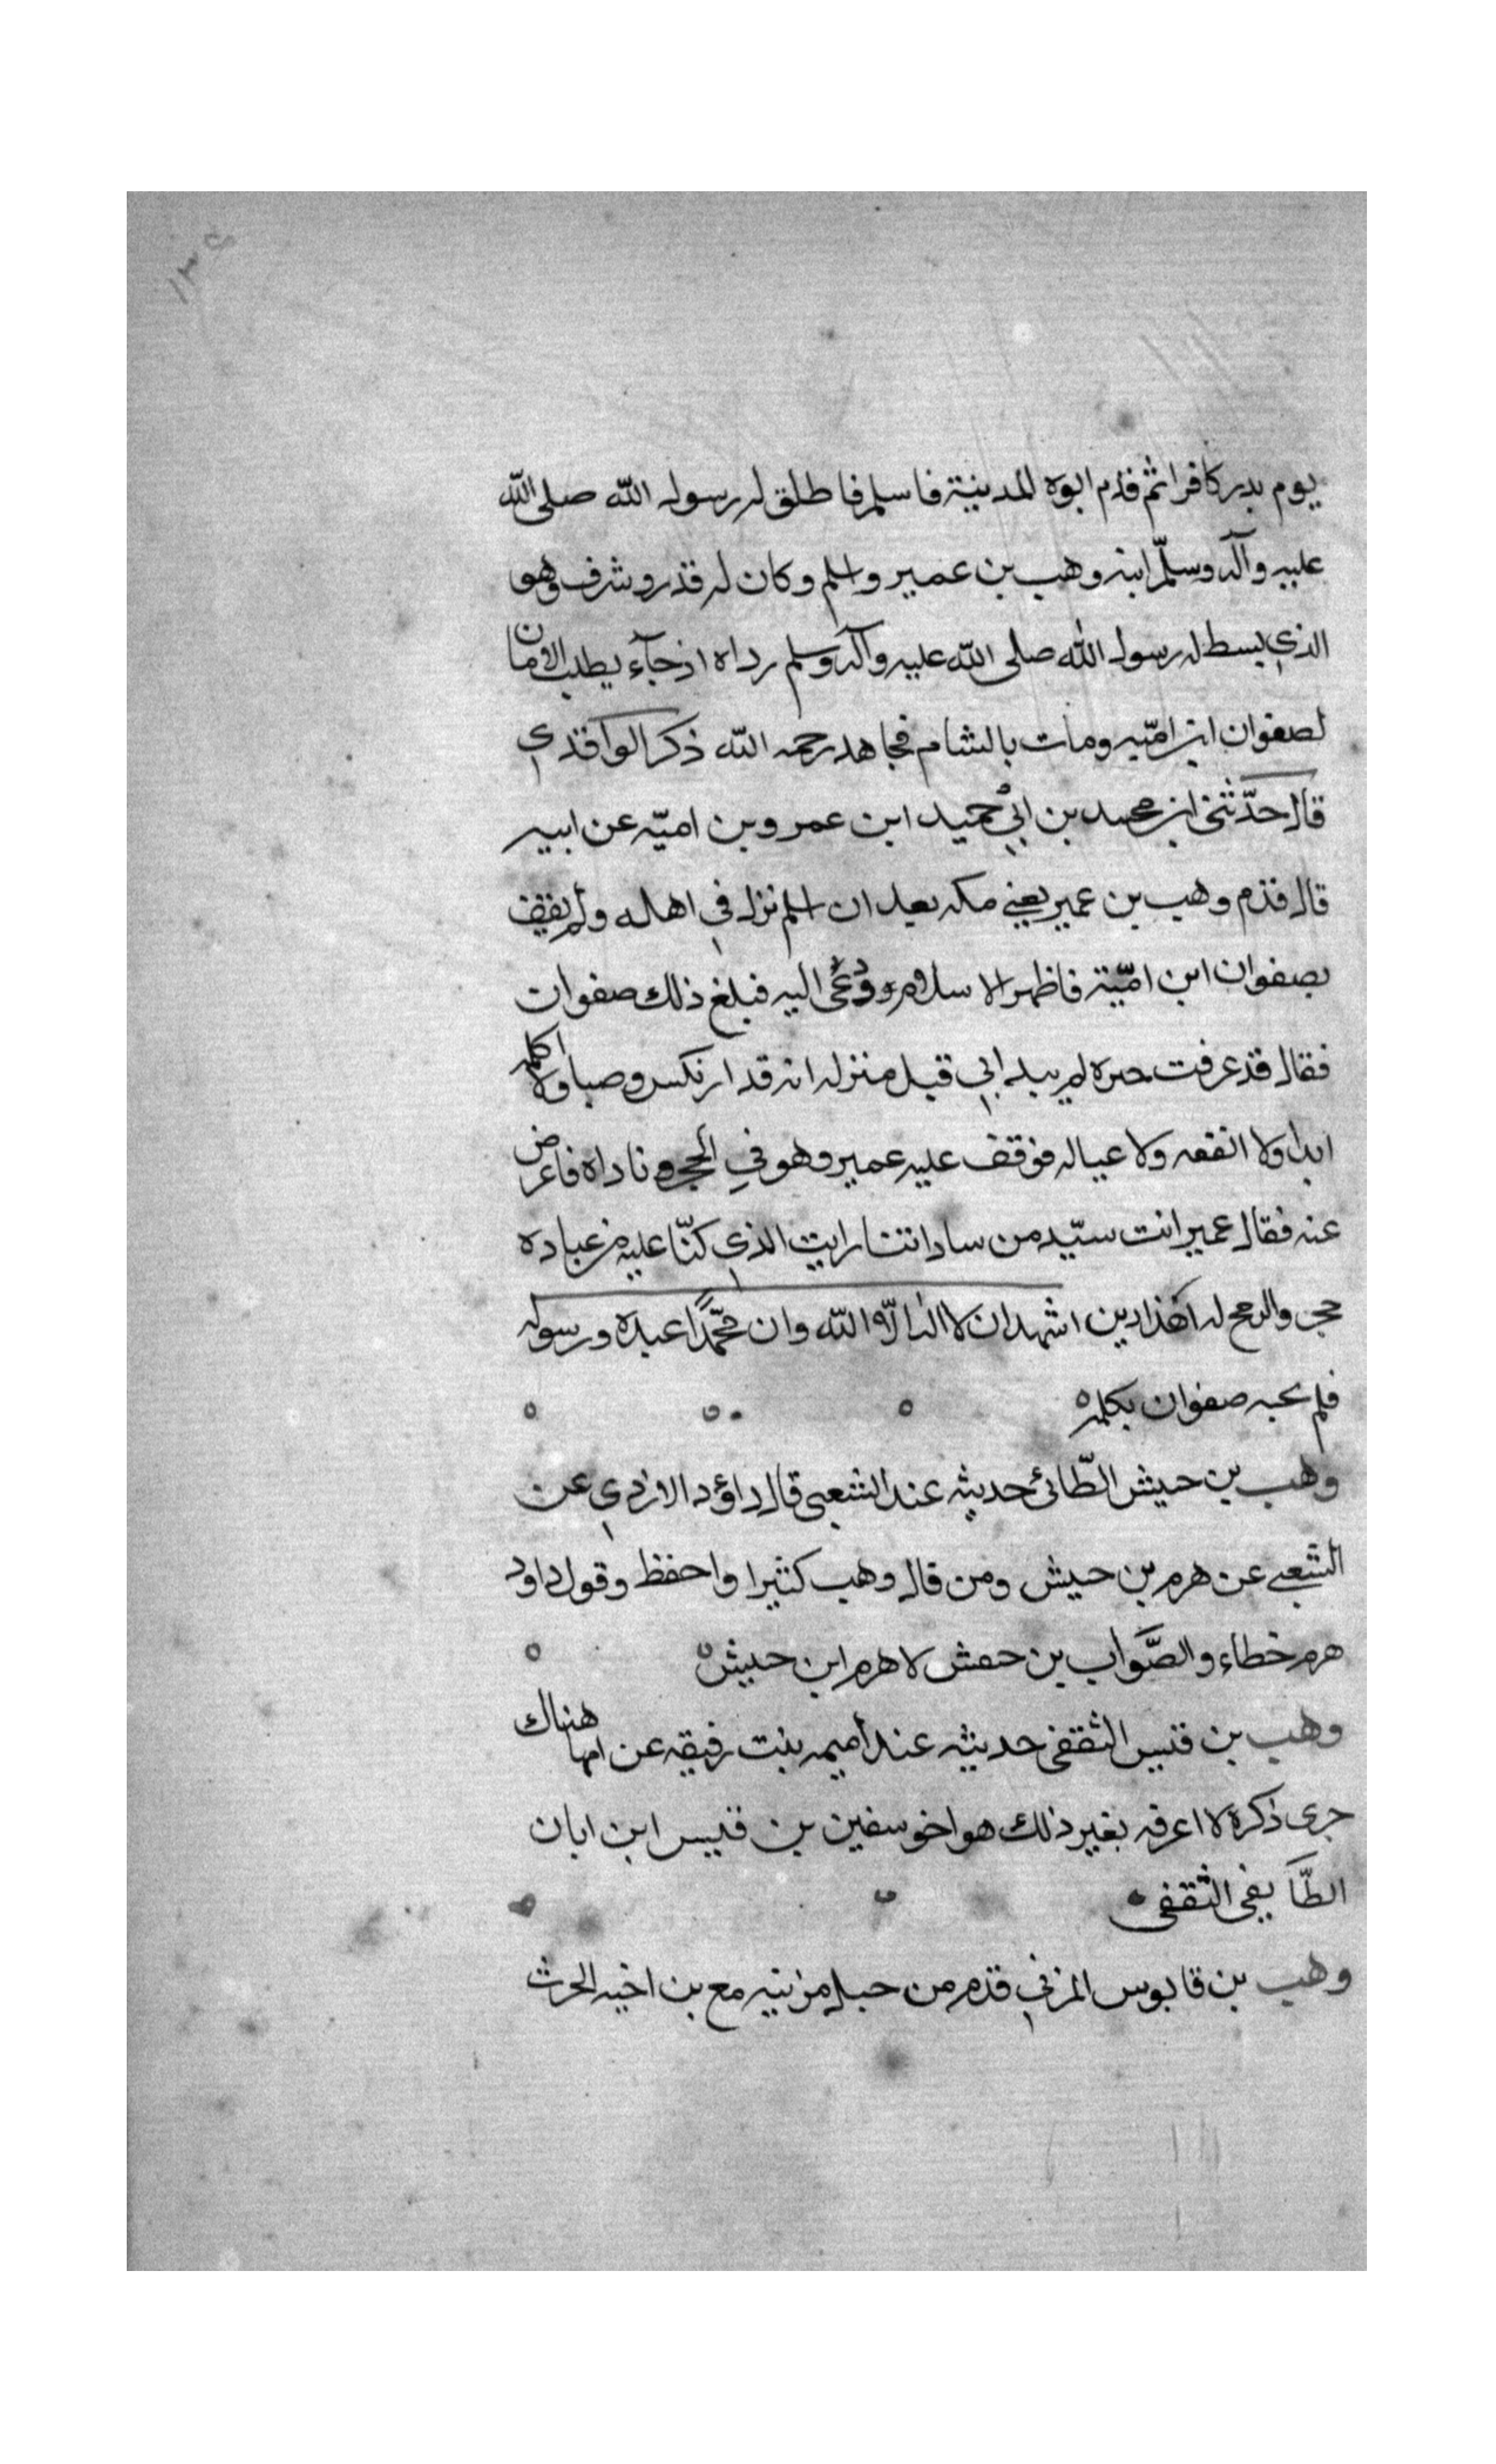 ١٣٥
يوم بدر كافرا ثم قدم ابوه المدينة فاسلم فاطلق له رسول الله صلى الله
عليه وآله وسلّم ابنه وهب بن عمير واسلم وكان له قدر وشرف وهو
الذي بسط له رسول الله صلى الله عليه وآله وسلم رداه اذ جآء يطلب الامان
لصفوان ابن اميّه ومات بالشام مجاهد رحمه الله ذكر الواقدي
قال حدّثني ابن محمد بن ابي حميد ابن عمرو بن اميّه عن ابيه
قال قدم وهب بن عمير يعني مكه بعد ان اسلم نزل في اهله ولم يقف
بصفوان ابن اميّة فاظهر الاسلام ودُعى اليه فبلغ ذلك صفوان
فقال قد عرفت حىره لم يبد ابي قبل منزله انه قد ارتكس وصبا ولا اكلمه
ابدا ولا انفعه ولا عياله فوقف عليه عمير وهو في الحجر وناداه فاعرض
عنه فقال عمير انت سيّد من ساداتنا رايت الذي كنّا عليه من عباده
حجر والدبح له اهذا دين اشهد ان لا اله الا الله وان محمّدًا عبده ورسوله
فلم يجبه صفوان بكلمه
وهب بن حبيش الطّائي حديثه عند الشعبي قال داؤد الازدي عن
الشعبي عن هرم بن حبيش ومن قال وهب كثيرا واحفظ وقول داود
هرم خطاء والصَّواب بن حىش لا هرم ابن حبيش
وهب بن قيس الثقفي حديثه عند اميمه بنت رقيقه عن امها هناك
جرى ذكره لا اعرفه بغير ذلك هو اخو سفين بن قيس ابن ابان
الطّايفي الثقفي
وهب بن قابوس المزني قدم من جبل مزينه مع بن اخيه الحرث